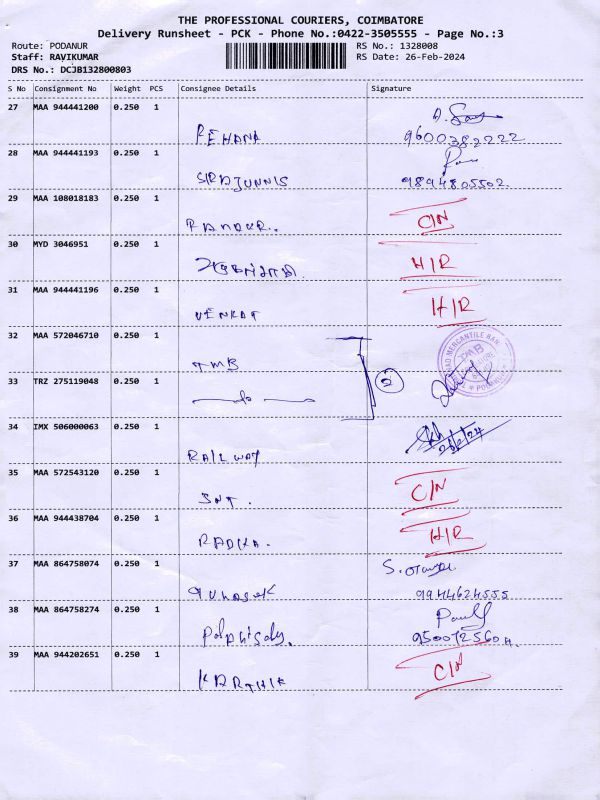 THE PROFESSIONAL COURIERS, COIMBATORE
Delivery Runsheet - PCK - Phone No.:0422-3505555 - Page No.:3
Route: PODANUR RS No.: 1328008
Staff: RAVIKUMAR RS Date: 26-Feb-2024
DRS No.: DCJB132800803
S No Consignment No Weight PCS Consignee Details Signature
27 MAA 944441200 0.250 1
REHANA 9600382222
28 MAA 944441193 0.250 1
SIRAJUNNIS 9894805502.
29 MAA 108018183 0.250 1
C/N
30 MYD 3046951 0.250 1
H/R
31 MAA 944441196 0.250 1
VENKAT H/R
32 MAA 572046710 0.250 1
TMB
33 TRZ 275119048 0.250 1
do 2
34 IMX 506000063 0.250 1
RAILWAY 26/2/24
35 MAA 572543120 0.250 1
SNT. C/N
36 MAA 944438704 0.250 1
RADIKA. H/R
37 MAA 864758074 0.250 1
9944624555
38 MAA 864758274 0.250 1
39 MAA 944202651 0.250 1
KARTHIK C/N